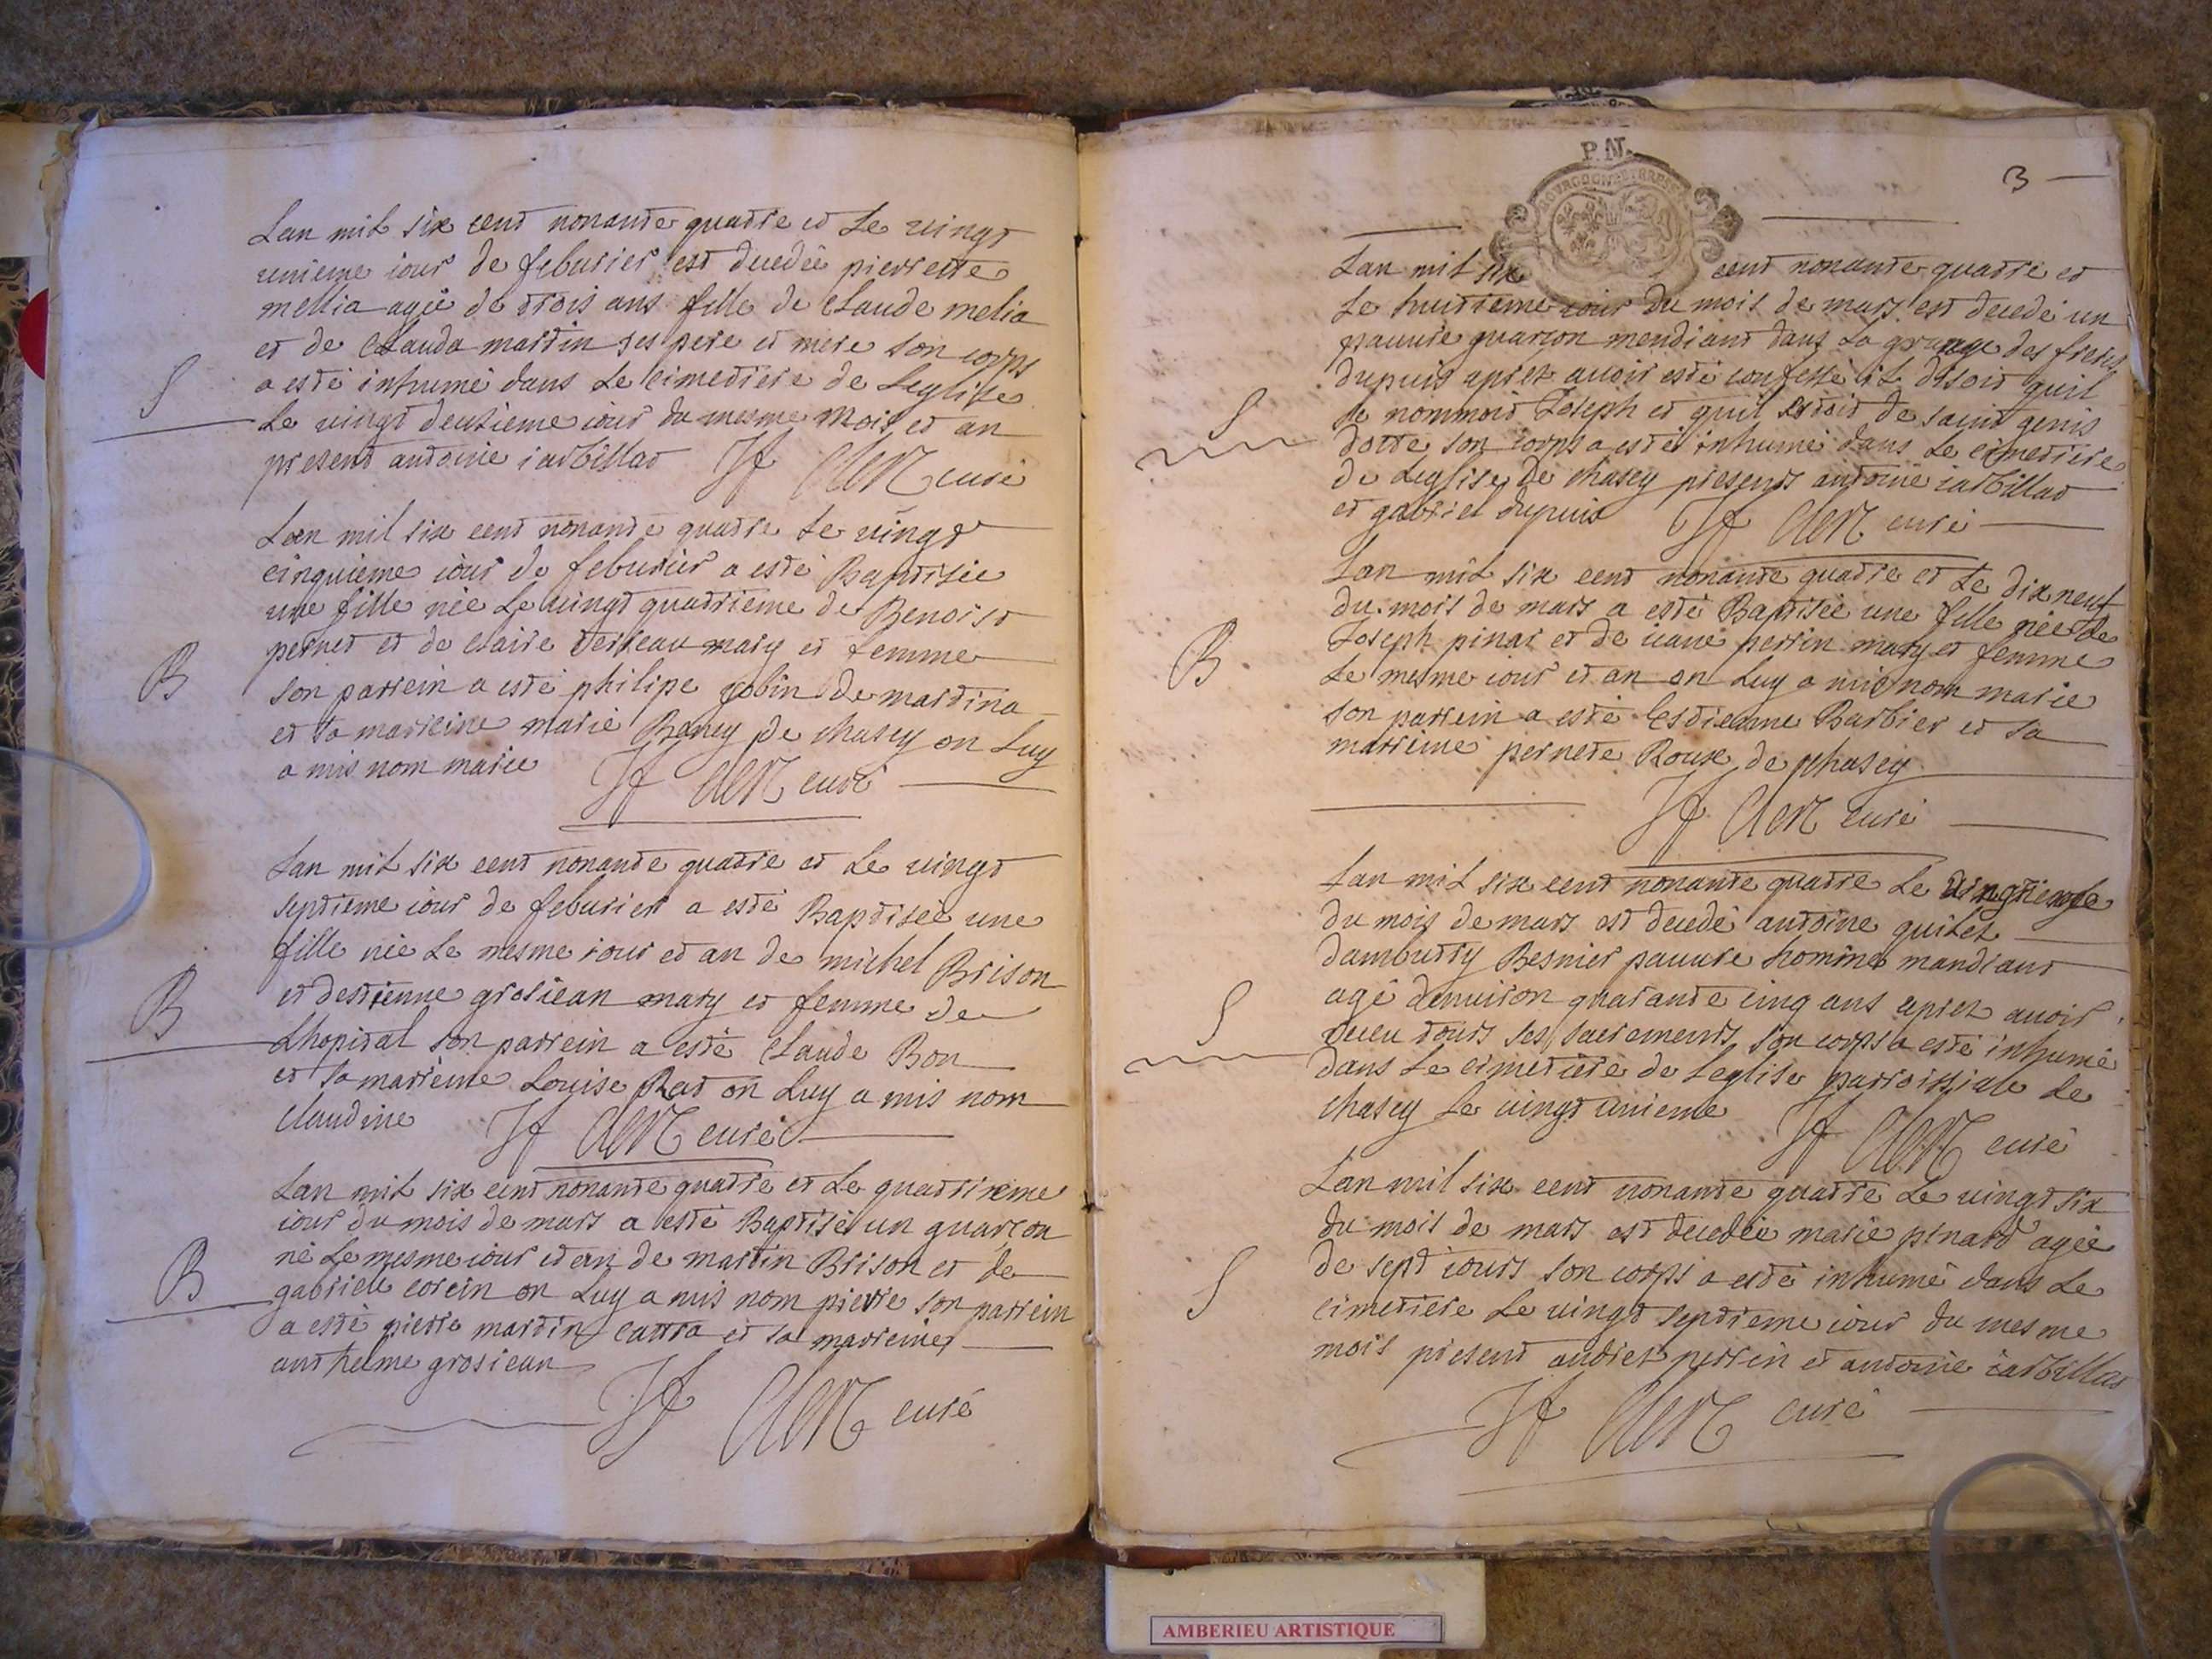 Lan mil six cent nonante quatre et Le vingt
unieme iour de feburier est decedée pierrette
mellia agée de trois ans fille de Claude melia
et de Clauda martin ses pere et mere son corps
S
a esté inhumé dans Le cimetiere de Leglise
Le vingt deuzieme iour du mesme mois et an
present antoine iarbillat JF Clerc curé
Lan mil six cent nonante quatre Le vingt
cinquieme iour de feburier a esté Baptisée
une fille née Le vingt quatrieme de Benoist
pernet et de claire mary et femme
B
son parrein a esté philipe gobin de martina
et sa marreine marie de chasey on Luy
a mis nom marie JF Clerc curé
Lan mil six cent nonante quatre et Le vingt
septieme iour de feburier a esté Baptisée une
fille née Le mesme iour et an de michel Brison
B
et destienne grosiean mary et femme de
Lhopital son parrein a esté Claude Bon
et sa marreine Louise Rat on Luy a mis nom
claudine JF Clerc curé
Lan mil six cent nonante quatre et Le quatrieme
iour du mois de mars a esté Baptisé un guarcon
né Le mesme iour et an de martin Brison et de
B
gabriele corein on Luy a mis nom pierre son parrein
a esté pierre martin et sa marreine
anthelme grosiean
JF Clerc curé
P.N.
BOURGOGNE ET BRESSE
3
Lan mil six cent nonante quatre et
Le huitieme iour du mois de mars est decedé un
pauure guarcon mendiant dans La grange des freres
dupuis aprez auoir esté confessé il disoit quil
S
se nommoit Joseph et quil estoit de saint genis
dotte son corps a esté inhumé dans Le cimetiere
de Leglise De chasey presents antoine iarbillat
et gabriel dupuis JF Clerc curé
Lan mil six cent nonante quatre et Le dix neuf
du mois de mars a esté Baptisée une fille née de
B
Joseph pinar et de iane perrin mary et femme
Le mesme iour et an on Luy a mis nom marie
son parrein a esté Estienne Barbier et sa
marreine pernete Roux de chasey
JF Clerc curé
Lan mil six cent nonante quatre Le vingtieme
du mois de mars est decedé antoine quilet
dambutty Besnier pauure homme mandiant
S
agé denuiron quarante cinq ans aprez auoir
receu touts ses sacrements son corps a esté inhumé
dans Le cimetiere de Leglise parroissiale de
chasey Le vingt unieme JF Clerc curé
Lan mil six cent nonante quatre Le vingt six
du mois de mars est decedée marie pinard agée
de sept iours son corps a esté inhumé dans Le
S
cimetiere Le vingt septieme iour du mesme
mois present andrez perrin et antoine iarbillat
JF Clerc curé
AMBERIEU ARTISTIQUE